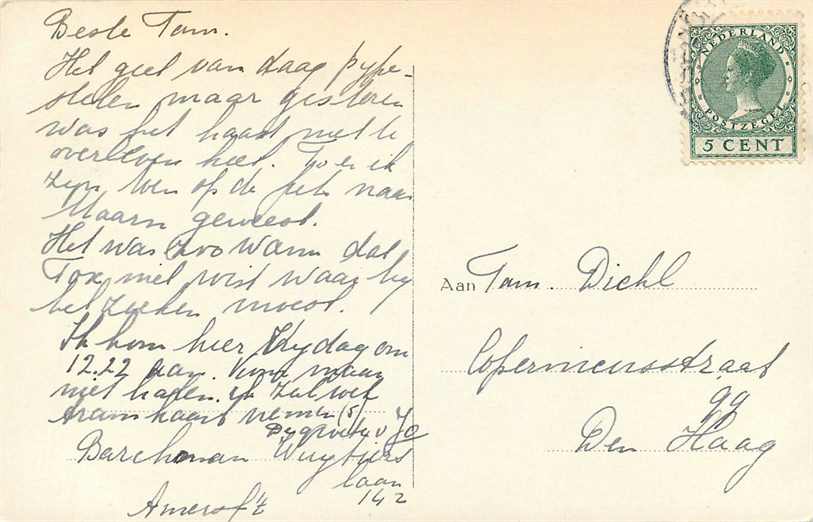 Beste Tom.
Het giet van daag pype-
stelen maar gisteren
was het haast niet te
overleven heet. To en ik
zyn wen op de fiets naar
Maarn geweest.
Het was zoo warm dat
Tox niet wist waar hy
het zoeken moest.
Ik kom hier Vrydag om
12.22 aan. maar
niet halen. ik zal wel
tramkaart nemen (5)
De groeten v Jo
Barchman Wuytiers
laan
142
Amersft
NEDERLAND
POSTZEGEL
5 CENT
Aan Tom. Diehl
Copernicusstraat
99
Den Haag